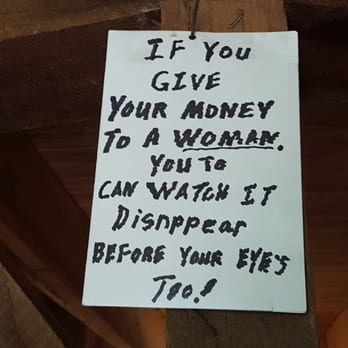 IF YOU
GIVE
YOUR MONEY
TO A WOMAN.
YOU TO
CAN WATCH IT
Disappear
BEFORE YOUR EYE'S
Too!